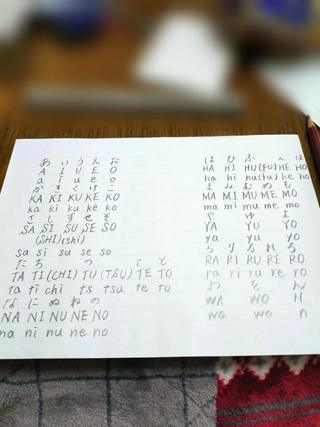 あ い う え お
A I U E O
a i u e o
か き く け こ
KA KI KU KE KO
ka ki ku ke ko
さ し す せ そ
SA SI SU SE SO
(SHI)(shi)
sa si su se so
た ち つ て と
TA TI(CHI) TU(TSU) TE TO
ta ti chi ts tsu te to
な に ぬ ね の
NA NI NU NE NO
na ni nu ne no
は ひ ふ へ ほ
HA HI HU(FU) HE HO
ha hi hu(fu) he ho
ま み む め も
MA MI MU ME MO
ma mi mu me mo
や ゆ よ
YA YU YO
ya yu yo
ら り る れ ろ
RA RI RU RE RO
ra ri ru re ro
わ を ん
WA WO N
wa wo n